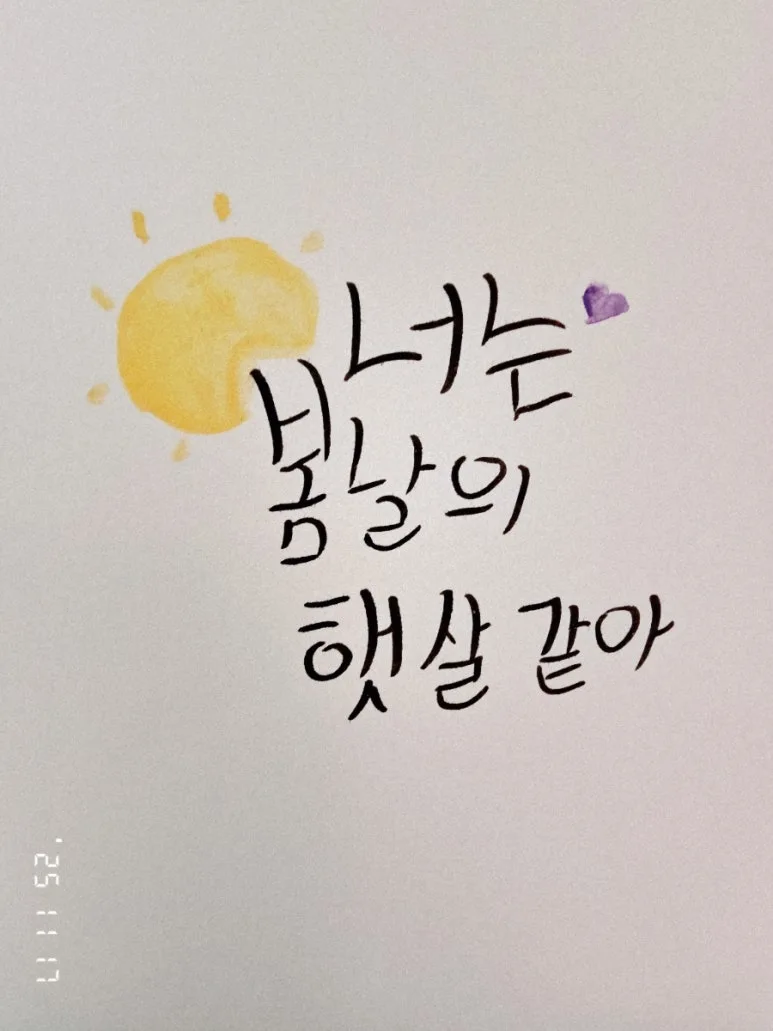 너는
봄날의
햇살 같아
'25 11 17